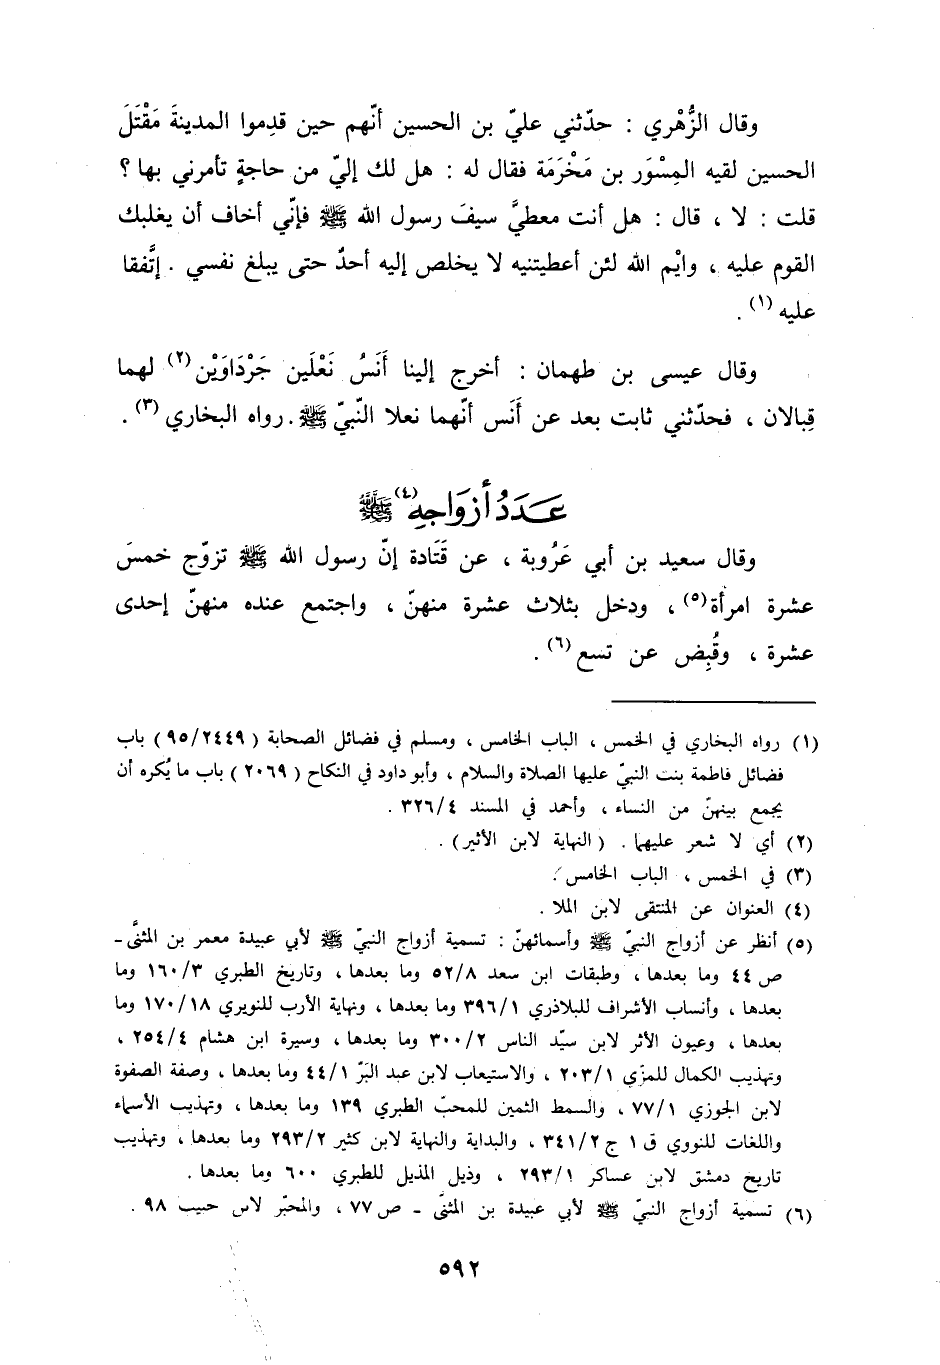 وقال الزُّهْري : حدّثني عليّ بن الحسين أنّهم حين قدِموا المدينةَ مَقْتَلَ
الحسين لقيه المِسْوَر بن مَخْرَمَة فقال له : هل لك إليّ من حاجةٍ تأمرني بها ؟
قلت : لا ، قال : هل أنت معطيَّ سيفَ رسول الله ﷺ فإنّي أخاف أن يغلبك
القوم عليه ، وايْم الله لئن أعطيتنيه لا يخلص إليه أحدٌ حتى يبلغ نفسي . إتَّفقا
عليه (١) .
وقال عيسى بن طهمان : أخرج إلينا أَنَسُ نَعْلَين جَرْدَاوَيْن (٢) لهما
قِبالان ، فحدّثني ثابت بعد عن أَنَس أنّهما نعلا النّبيّ ﷺ. رواه البخاري (٣) .
عَدَدُ أزوَاجِهِ (٤) ﷺ
وقال سعيد بن أبي عَرُوبة ، عن قَتَادة إنّ رسول الله ﷺ تزوّج خمسَ
عشرة امرأة (٥) ، ودخل بثلاث عشرة منهنّ ، واجتمع عنده منهنّ إحدى
عشرة ، وقُبِض عن تسع (٦) .
(١) رواه البخاري في الخمس ، الباب الخامس ، ومسلم في فضائل الصحابة ( ٩٥/٢٤٤٩ ) باب
فضائل فاطمة بنت النبيّ عليها الصلاة والسلام ، وأبو داود في النكاح ( ٢٠٦٩ ) باب ما يُكره أن
يجمع بينهنّ من النساء ، وأحمد في المسند ٣٢٦/٤ .
(٢) أي لا شعر عليهما . ( النهاية لابن الأثير ) .
(٣) في الخمس ، الباب الخامس .
(٤) العنوان عن المنتقى لابن الملا .
(٥) أنظر عن أزواج النبيّ ﷺ وأسمائهنّ : تسمية أزواج النبيّ ﷺ لأبي عبيدة معمر بن المثنَّى ـ
ص ٤٤ وما بعدها ، وطبقات ابن سعد ٥٢/٨ وما بعدها ، وتاريخ الطبري ١٦٠/٣ وما
بعدها ، وأنساب الأشراف للبلاذري ٣٩٦/١ وما بعدها ، ونهاية الأرب للنويري ١٧٠/١٨ وما
بعدها ، وعيون الأثر لابن سيّد الناس ٣٠٠/٢ وما بعدها ، وسيرة ابن هشام ٢٥٤/٤ ،
وتهذيب الكمال للمزّي ٢٠٣/١ ، والاستيعاب لابن عبد البَرّ ٤٤/١ وما بعدها ، وصفة الصفوة
لابن الجوزي ٧٧/١ ، والسمط الثمين للمحبّ الطبري ١٣٩ وما بعدها ، وتهذيب الأسماء
واللغات للنووي ق ١ ج ٣٤١/٢ ، والبداية والنهاية لابن كثير ٢٩٣/٢ وما بعدها ، وتهذيب
تاريخ دمشق لابن عساكر ٢٩٣/١ ، وذيل المذيل للطبري ٦٠٠ وما بعدها .
(٦) تسمية أزواج النبيّ ﷺ لأبي عبيدة بن المثنَّى ـ ص ٧٧ ، والمحبّر لابن حبيب ٩٨ .
٥٩٢